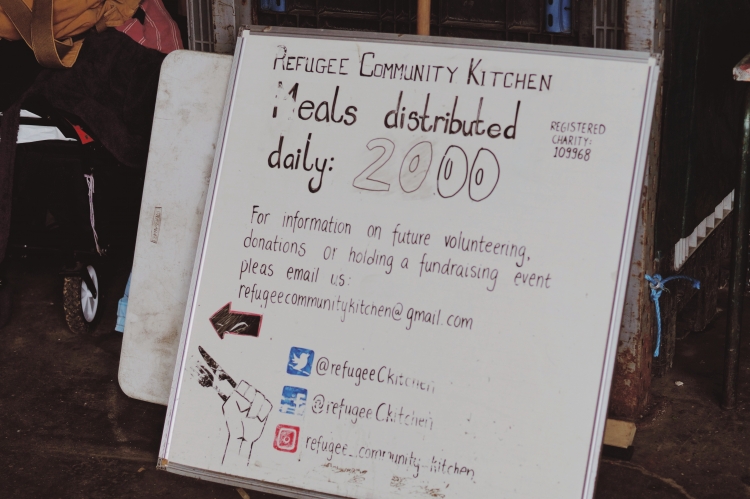 REFUGEE COMMUNITY KITCHEN
Meals distributed
daily: 2000
REGISTERED
CHARITY:
109968
For information on future volunteering,
donations or holding a fundraising event
pleas email us:
refugeecommunitykitchen@gmail.com
@refugeeCkitchen
@refugeeCkitchen
refugee_community_kitchen